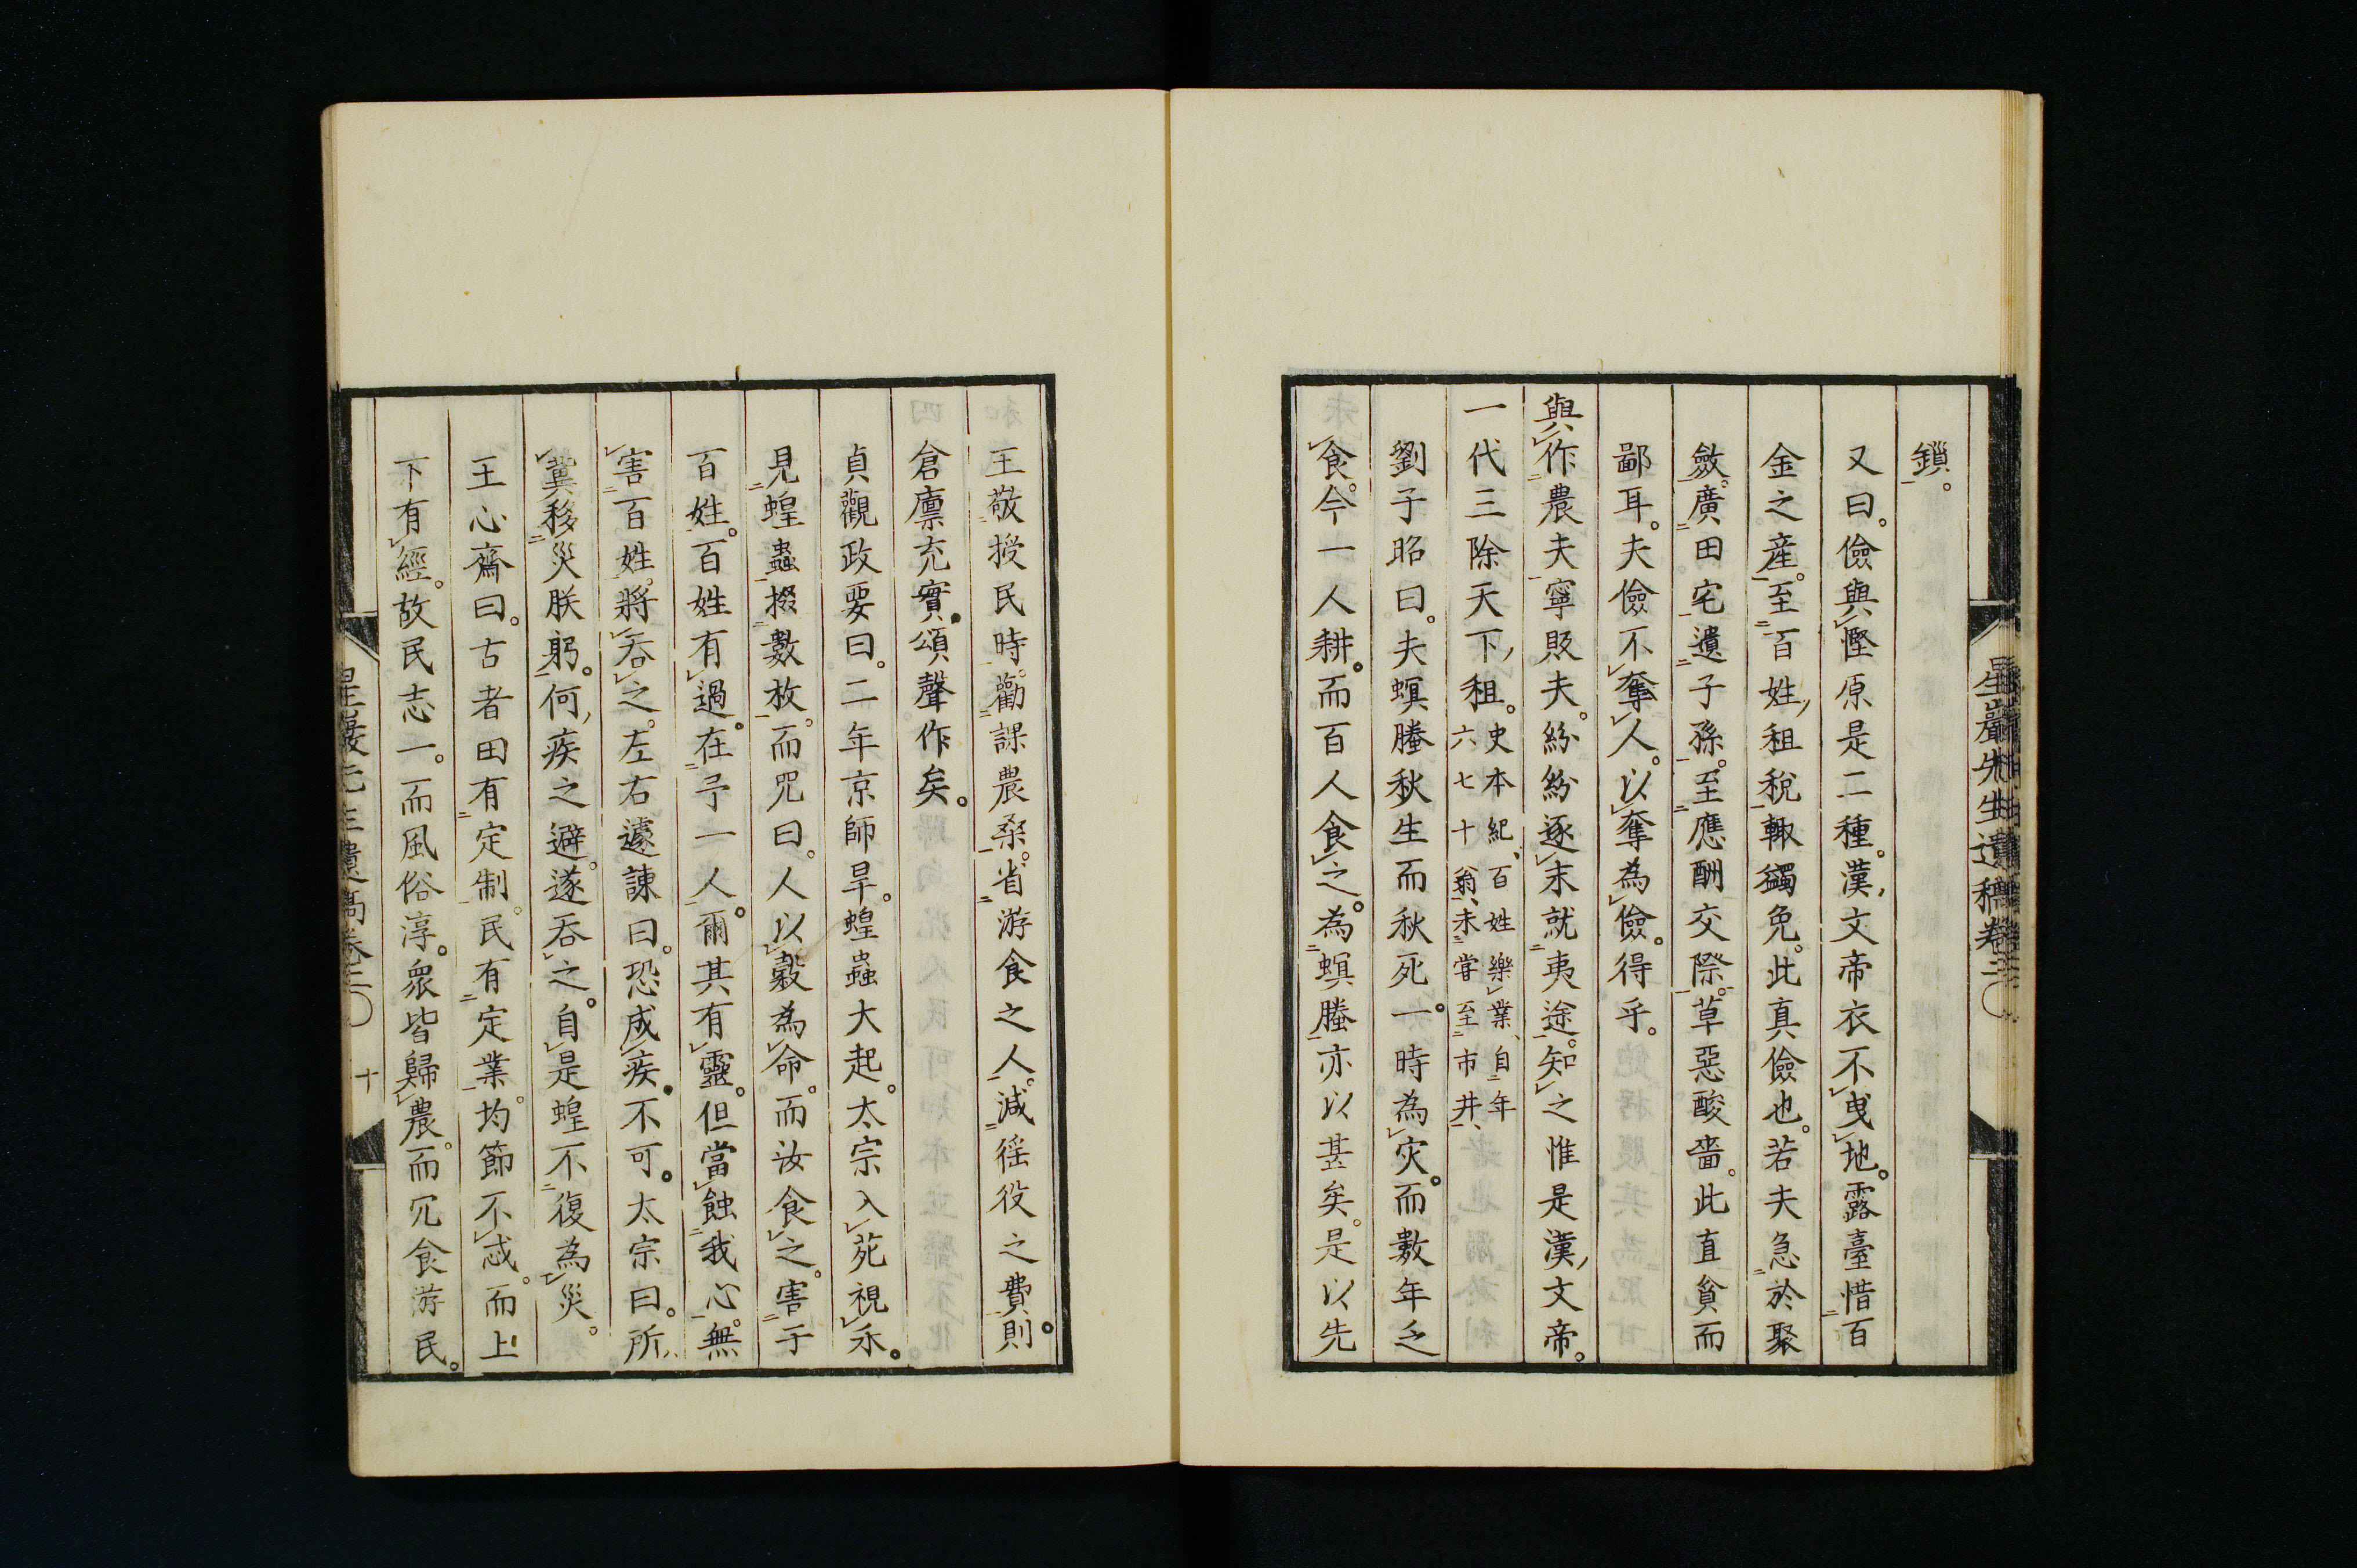 鎖。
又曰。儉與慳原是二種。漢文帝衣不曳地。露臺惜百
金之産。至百姓租稅輙蠲免。此真儉也。若夫急於聚
斂。廣田宅遺子孫。至應酬交際。草惡酸嗇。此直貧而
鄙耳。夫儉不奪人。以奪為儉。得乎。
與作農夫寧販夫。紛紛逐末就夷途。知之惟是漢文帝。
一代三除天下租。史本紀、百姓樂業、自年
六七十翁、未甞至市井、
劉子昭曰。夫螟螣秋生而秋死。一時為灾。而數年乏
食。今一人耕。而百人食之。為螟螣亦以甚矣。是以先
王敬授民時。勸課農桑。省游食之人。減徭役之費。則
倉廩充實。頌聲作矣。
貞觀政要曰。二年京師旱。蝗蟲大起。太宗入苑視禾。
見蝗蟲掇數枚。而咒曰。人以穀為命。而汝食之。害于
百姓。百姓有過。在予一人。爾其有靈。但當蝕我心。無
害百姓。將吞之。左右遽諫曰。恐成疾。不可。太宗曰。所
冀移災朕躬。何疾之避。遂吞之。自是蝗不復為災。
王心齋曰。古者田有定制。民有定業。均節不忒。而上
下有經。故民志一。而風俗淳。衆皆歸農。而冗食游民。
星巖先生遺稿卷二〇
十